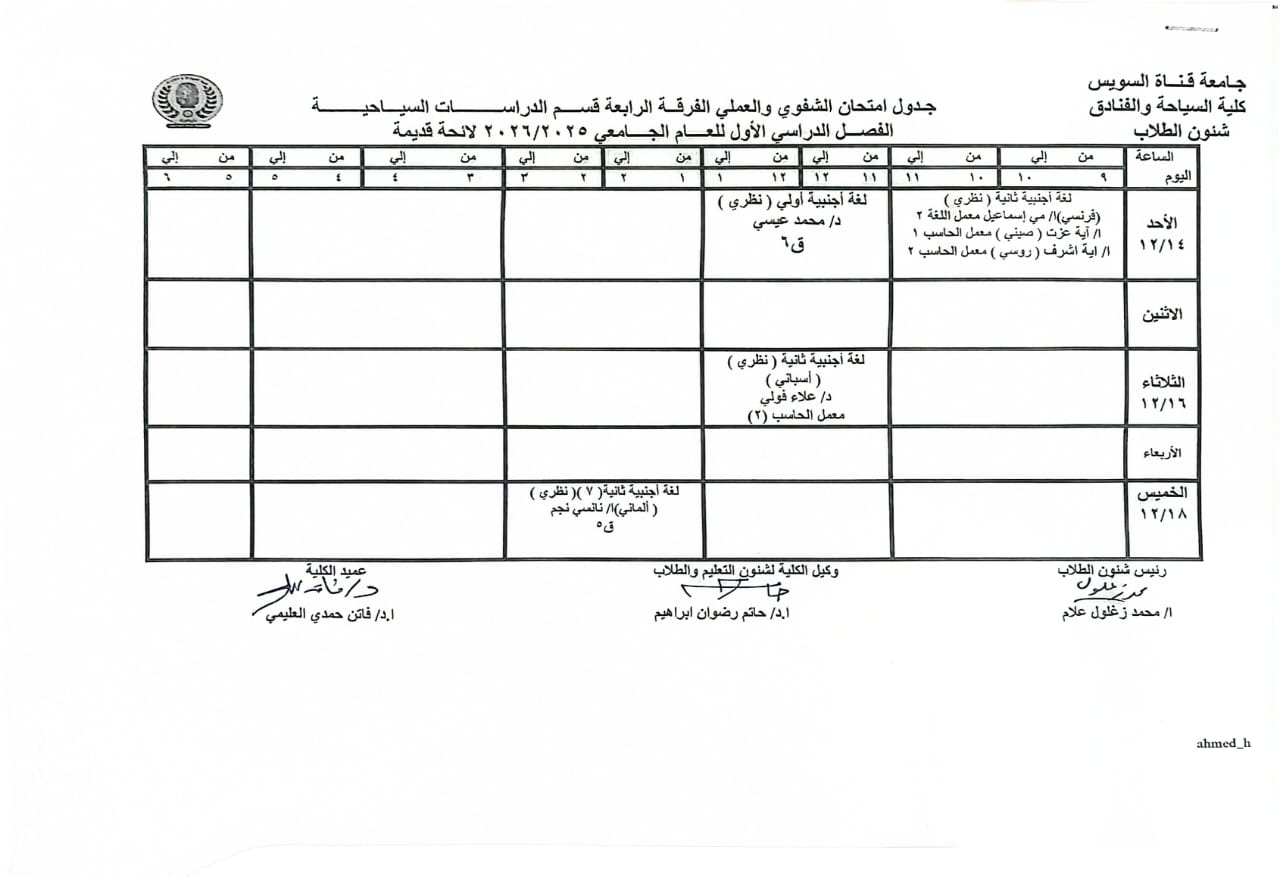 جامعة قناة السويس
كلية السياحة والفنادق
شئون الطلاب
جدول امتحان الشفوي والعملي الفرقة الرابعة قسم الدراسات السياحية
الفصل الدراسي الأول للعام الجامعي ٢٠٢٦/٢٠٢٥ لائحة قديمة
الساعة من إلي من إلي من إلي من إلي من إلي من إلي من إلي من إلي من إلي
اليوم ٩ ١٠ ١٠ ١١ ١١ ١٢ ١٢ ١ ١ ٢ ٢ ٣ ٣ ٤ ٤ ٥ ٥ ٦
الأحد
١٢/١٤
لغة أجنبية ثانية ( نظري )
(فرنسي)ا/ مي إسماعيل معمل اللغة ٢
ا/ آية عزت ( صيني ) معمل الحاسب ١
ا/ اية اشرف ( روسي ) معمل الحاسب ٢
لغة أجنبية أولي ( نظري )
د/ محمد عيسي
ق٦
الاثنين
الثلاثاء
١٢/١٦
لغة أجنبية ثانية ( نظري )
( أسباني )
د/ علاء فولي
معمل الحاسب (٢)
الأربعاء
الخميس
١٢/١٨
لغة أجنبية ثانية( ٧ )( نظري )
( ألماني)ا/ نانسي نجم
ق٥
رئيس شئون الطلاب
ا/ محمد زغلول علام
وكيل الكلية لشئون التعليم والطلاب
ا.د/ حاتم رضوان ابراهيم
عميد الكلية
ا.د/ فاتن حمدي العليمي
ahmed_h